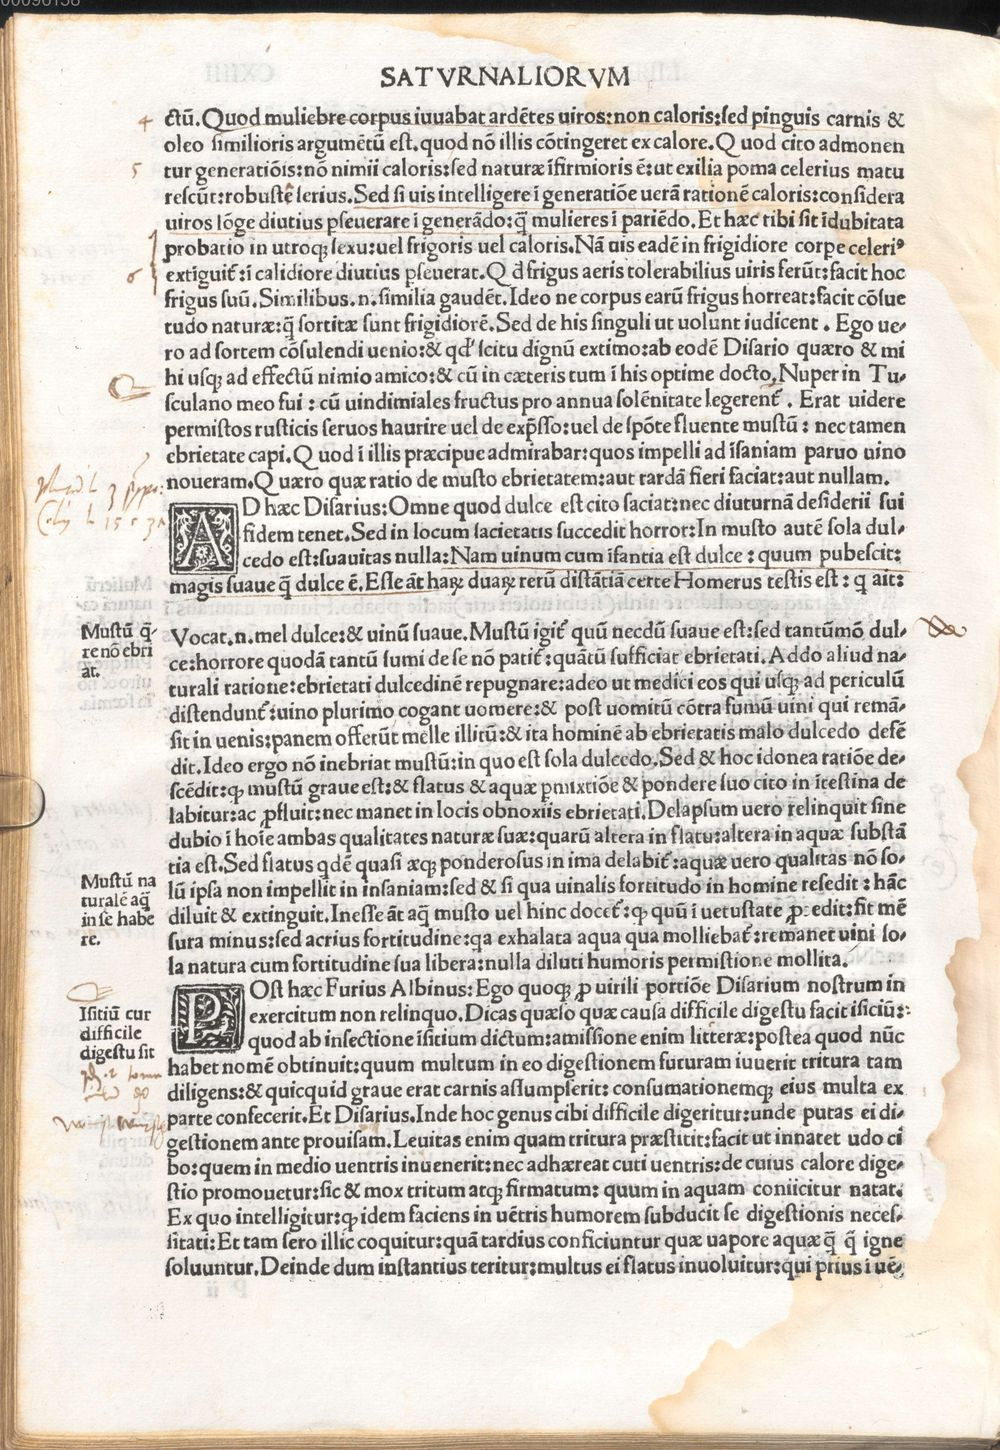 SATVRNALIORVM
ctū. Quod muliebre corpus iuuabat ardētes uiros: non caloris: sed pinguis carnis &
oleo similioris argumētū est. quod nō illis cōtingeret ex calore. Quod cito admonen
tur generatiōis: nō nimii caloris: sed naturæ īfirmioris ē: ut exilia poma celerius matu
rescūt: robustę serius. Sed si uis intelligere ī generatiōe uerā rationē caloris: considera
uiros lōge diutius pseuerare ī generādo: q̄ mulieres ī pariēdo. Et hæc tibi sit īdubitata
probatio in utroq; sexu: uel frigoris uel caloris. Nā uis eadē in frigidiore corpe celeriꝰ
extīguit̄: ī calidiore diutius pseuerat. Q d̄ frigus aeris tolerabilius uiris ferūt: facit hoc
frigus suū. Similibus. n. similia gaudēt. Ideo ne corpus earū frigus horreat: facit cōsue
tudo naturæ: q̄ sortitæ sunt frigidiorē. Sed de his singuli ut uolunt iudicent. Ego ue-
ro ad sortem cōsulendi uenio: & qd' scitu dignū extimo: ab eodē Disario quæro & mi
hi usq; ad effectū nimio amico: & cū in cæteris tum ī his optime docto. Nuper in Tu-
sculano meo fui: cū uindimiales fructus pro annua solēnitate legerent̄. Erat uidere
permistos rusticis seruos haurire uel de exp̄sso: uel de spōte fluente mustū: nec tamen
ebrietate capi. Quod ī illis præcipue admirabar: quos impelli ad īsaniam paruo uino
noueram. Quæro quæ ratio de musto ebrietatem: aut tardā fieri faciat: aut nullam.
AD hæc Disarius: Omne quod dulce est cito saciat: nec diuturnā desiderii sui
fidem tenet. Sed in locum sacietatis succedit horror: In musto autē sola dul-
cedo est: suauitas nulla: Nam uinum cum īfantia est dulce: quum pubescit:
magis suaue q̄ dulce ē. Esse āt haꝝ duaꝝ rerū distātiā certe Homerus testis est: q ait:
Vocat. n. mel dulce: & uinū suaue. Mustū igit̄ quū necdū suaue est: sed tantūmō dul-
ce: horrore quodā tantū sumi de se nō patit̄: quātū sufficiat ebrietati. Addo aliud na-
turali ratione: ebrietati dulcedinē repugnare: adeo ut medici eos qui usq; ad periculū
distendunt̄: uino plurimo cogant uomere: & post uomitū cōtra fumū uini qui remā-
sit in uenis: panem offerūt melle illitū: & ita hominē ab ebrietatis malo dulcedo defē
dit. Ideo ergo nō inebriat mustū: in quo est sola dulcedo. Sed & hoc idonea ratiōe de-
scēdit: ꝙ mustū graue est: & flatus & aquæ pmixtiōe & pondere suo cito in ītestina de
labitur: ac ꝓfluit: nec manet in locis obnoxiis ebrietati. Delapsum uero relinquit sine
dubio ī hoīe ambas qualitates naturæ suæ: quarū altera in flatu: altera in aquæ substā
tia est. Sed flatus qdē quasi æq; ponderosus in ima delabit̄: aquæ uero qualitas nō so-
lū ipsa non impellit in insaniam: sed & si qua uinalis fortitudo in homine resedit: hāc
diluit & extinguit. Inesse āt aq̄ musto uel hinc docet̄: ꝙ quū ī uetustate ꝓcedit: fit mē
sura minus: sed acrius fortitudine: qa exhalata aqua qua molliebat̄: remanet uini so-
la natura cum fortitudine sua libera: nulla diluti humoris permistione mollita.
POst hæc Furius Albinus: Ego quoq; ꝓ uirili portiōe Disarium nostrum in
exercitum non relinquo. Dicas quæso quæ causa difficile digestu facit isiciū:
quod ab insectione īsitium dictum: amissione enim litteræ: postea quod nūc
habet nomē obtinuit: quum multum in eo digestionem futuram iuuerit tritura tam
diligens: & quicquid graue erat carnis assumpserit: consumationemq; eius multa ex
parte confecerit. Et Disarius. Inde hoc genus cibi difficile digeritur: unde putas ei di-
gestionem ante prouisam. Leuitas enim quam tritura præstitit: facit ut innatet udo ci
bo: quem in medio uentris inuenerit: nec adhæreat cuti uentris: de cuius calore dige-
stio promouetur: sic & mox tritum atq; firmatum: quum in aquam coniicitur natat.
Ex quo intelligitur: ꝙ idem faciens in uētris humorem subducit se digestionis neces-
sitati: Et tam sero illic coquitur: quā tardius conficiuntur quæ uapore aquæ q̄ q̄ igne
soluuntur. Deinde dum instantius teritur: multus ei flatus inuoluitur: qui prius ī uē-
4
5
6
Mustū q̄-
re nō ebri
at.
Mustū na
turalē aq̄
in se habe
re.
Isitiū cur
difficile
digestu sit